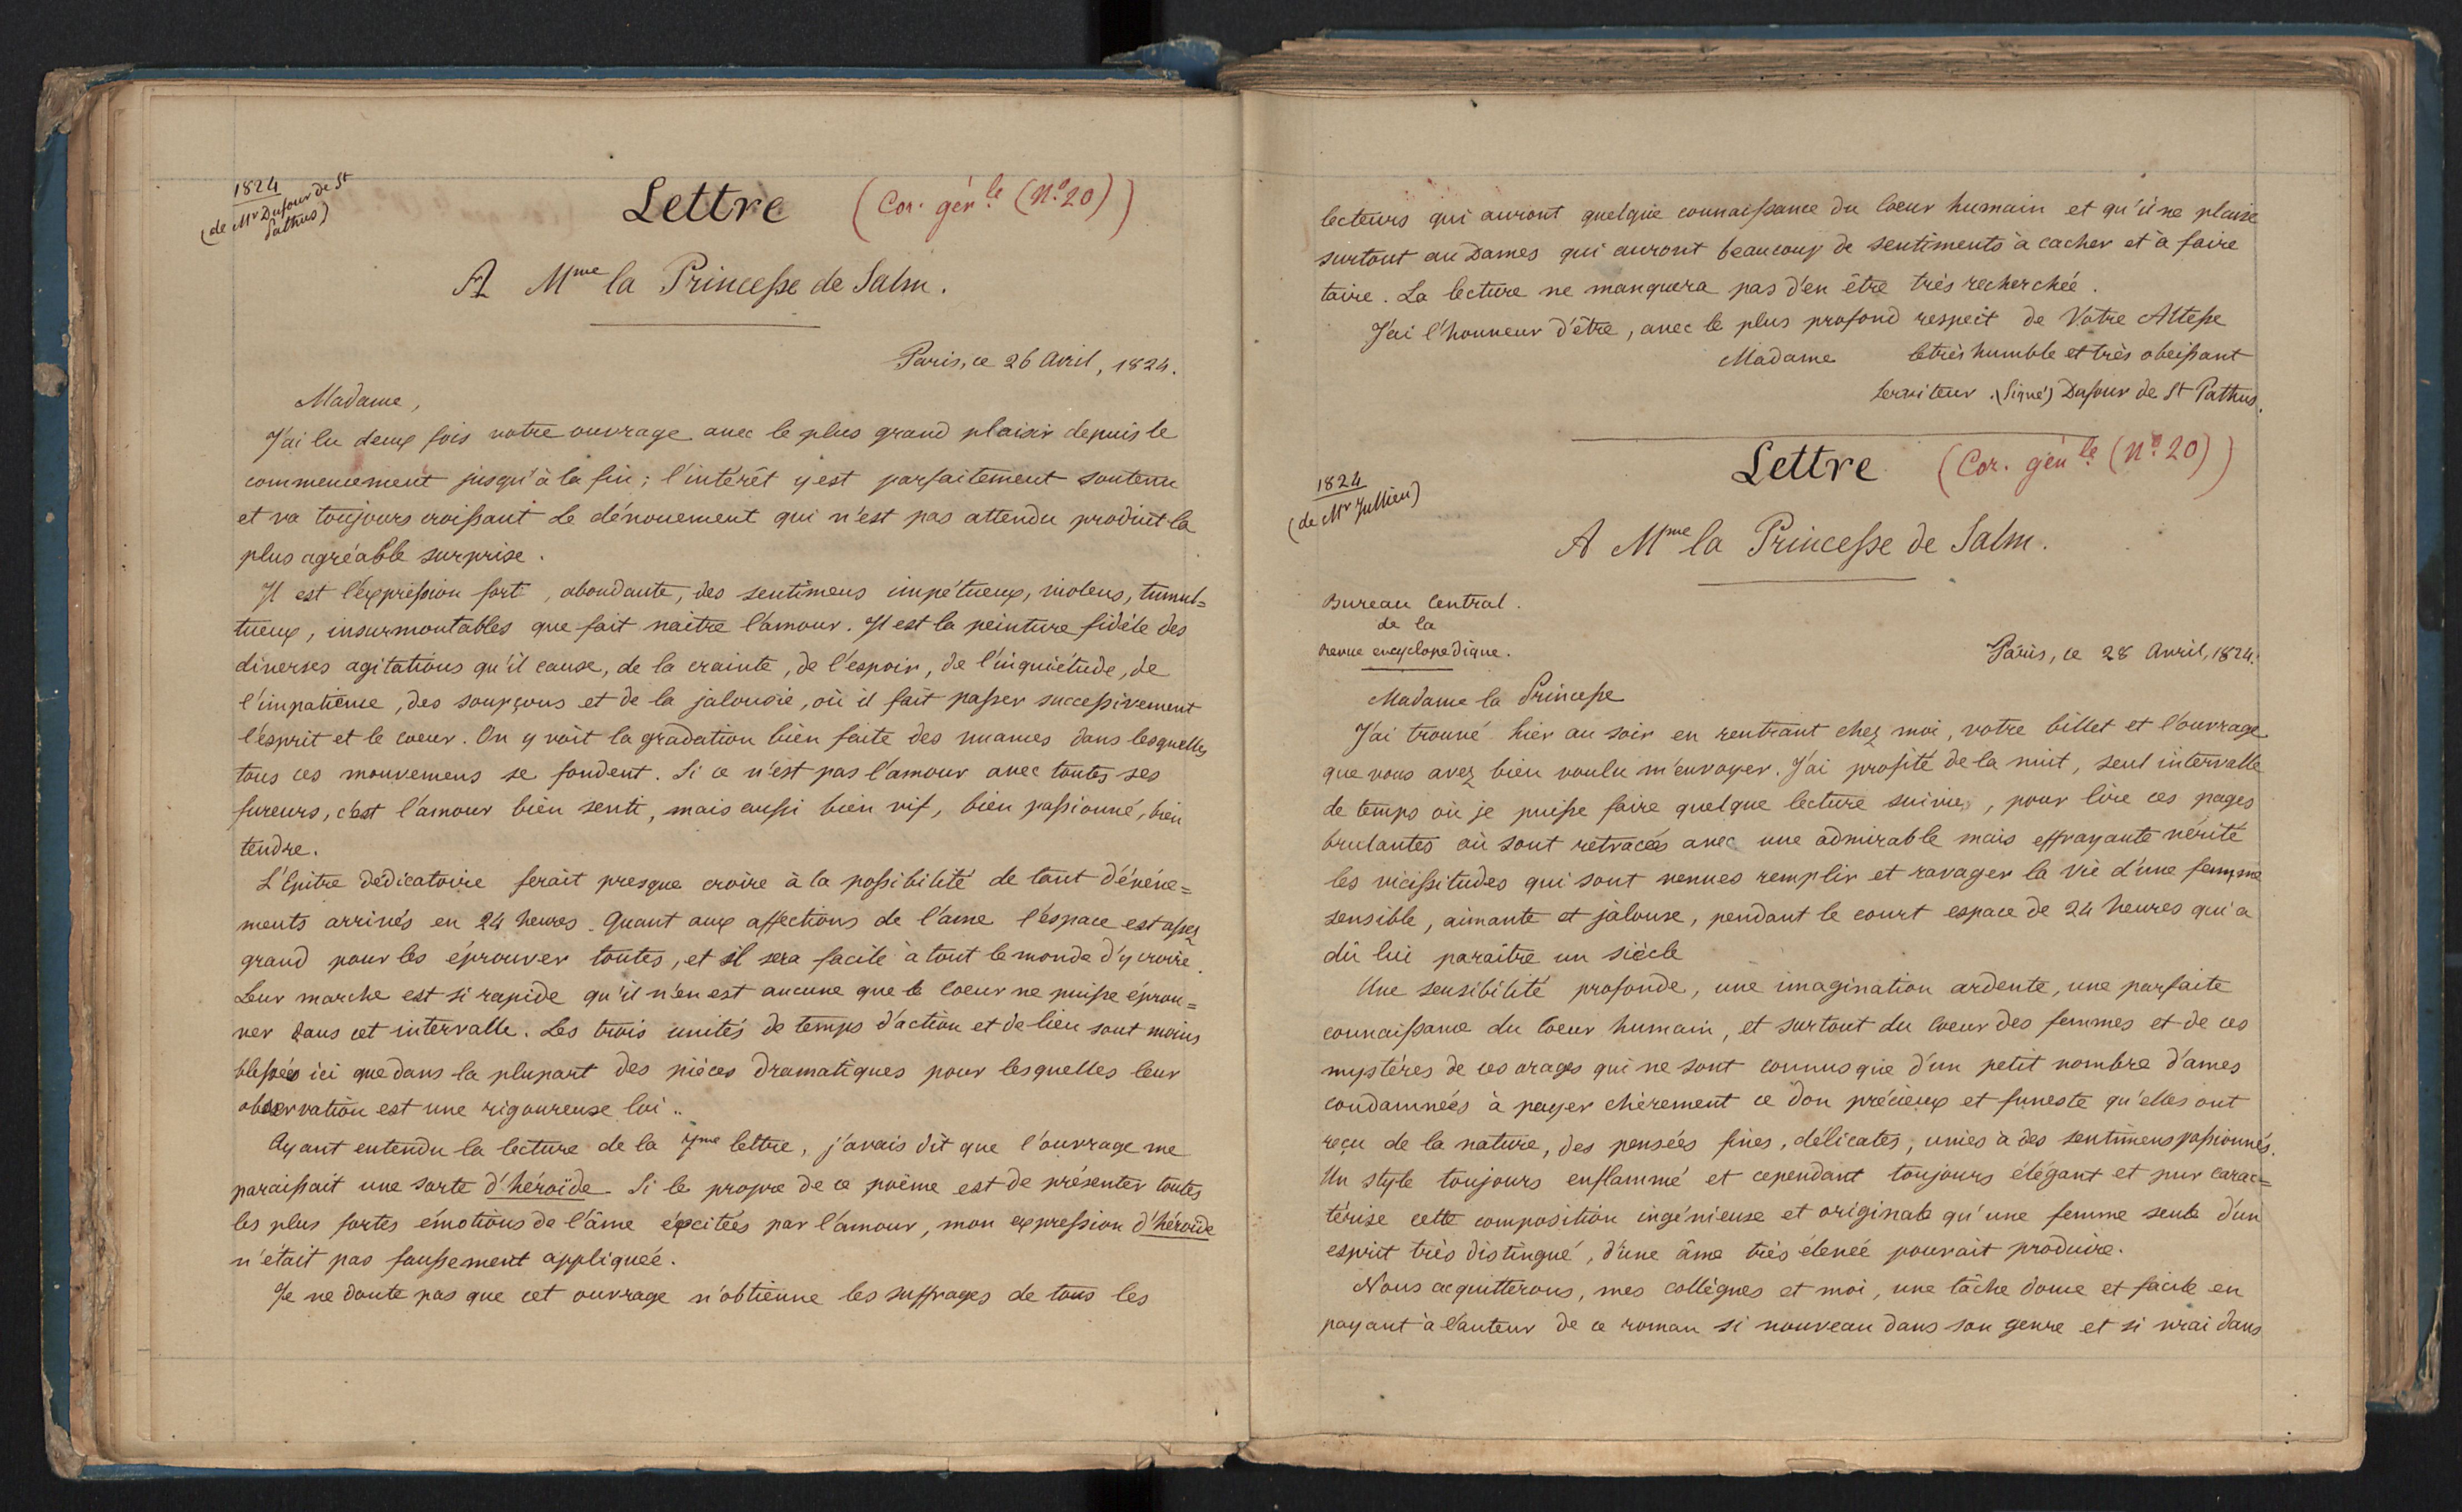 1824
(de Mr Dufour de St
Pathus)
Lettre (Cor. génle (No. 20))
A Mme la Princesse de Salm.
Paris, ce 26 avril, 1824.
Madame,
J'ai lu deux fois votre ouvrage avec le plus grand plaisir depuis le
commencement jusqu'à la fin; l'intérêt y est parfaitement soutenu
et va toujours croissant le dénouement qui n'est pas attendu produit la
plus agréable surprise.
Il est l'expression forte, abondante, des sentimens impétueux, violens, tumul=
tueux, insurmontables que fait naitre l'amour. Il est la peinture fidèle des
diverses agitations qu'il cause, de la crainte, de l'espoir, de l'inquiétude, de
l'impatience, des soupçons et de la jalousie, où il fait passer successivement
l'esprit et le coeur. On y voit la gradation bien faite des nuances dans lesquelles
tous ces mouvemens se fondent. Si ce n'est pas l'amour avec toutes ses
fureurs, c'est l'amour bien senti, mais aussi bien vif, bien passionné, bien
tendre.
L'Epitre dedicatoire ferait presque croire à la possibilité de tant d'évène=
ments arrivés en 24 heures. Quant aux affections de l'ame l'espace est assez
grand pour les éprouver toutes, et il sera facile à tout le monde d'y croire.
Leur marche est si rapide qu'il n'en est aucune que le coeur ne puisse éprou=
ver dans cet intervalle. Les trois unités de temps d'action et de lieu sont moins
blessées ici que dans la plupart des pièces dramatiques pour lesquelles leur
observation est une rigoureuse loi..
Ayant entendu la lecture de la 7me lettre, j'avais dit que l'ouvrage me
paraissait une sorte d'héroïde. Si le propre de ce poëme est de présenter toutes
les plus fortes émotions de l'âme excitées par l'amour, mon expression d'héroïde
n'était pas faussement appliquée.
Je ne doute pas que cet ouvrage n'obtienne les suffrages de tous les
lecteurs qui auront quelque connaissance du coeur humain et qu'il ne plaise
surtout au Dames qui auront beaucoup de sentiments à cacher et à faire
taire. La lecture ne manquera pas d'en être très recherchée.
J'ai l'honneur d'être, avec le plus profond respect de Votre Altesse
Madame le très humble et très obeissant
serviteur. (Signé) Dufour de St Pathus.
Lettre (Cor. génle (No. 20))
1824
(de Mr Jullien)
A Mme la Princesse de Salm.
Bureau Central.
de la
revue encyclopedique.
Paris, ce 28 Avril, 1824.
Madame la Princesse
J'ai trouvé hier au soir en rentrant chez moi, votre billet et l'ouvrage
que vous avez bien voulu m'envoyer. J'ai profité de la nuit, seul intervalle
de temps où je puisse faire quelque lecture suivie, pour lire ces pages
brulantes où sont retracées avec une admirable mais effrayante vérité
les vicissitudes qui sont venues remplir et ravager la vie d'une femme
sensible, aimante et jalouse, pendant le court espace de 24 heures qui a
dû lui paraître un siècle
Une sensibilité profonde, une imagination ardente, une parfaite
connaissance du coeur humain, et surtout du coeur des femmes et de ces
mystères de ces orages qui ne sont connus que d'un petit nombre d'ames
condamnées à payer chèrement ce don précieux et funeste qu'elles ont
reçu de la nature, des pensées fines, délicates, unies à des sentimens passionnés.
Un style toujours enflammé et cependant toujours élégant et pur carac=
térise cette composition ingénieuse et originale qu'une femme seule d'un
esprit très distingué, d'une âme très élevée pouvait produire.
Nous acquitterons, mes collègues et moi, une tâche douce et facile en
payant à l'auteur de ce roman si nouveau dans son genre et si vrai dans